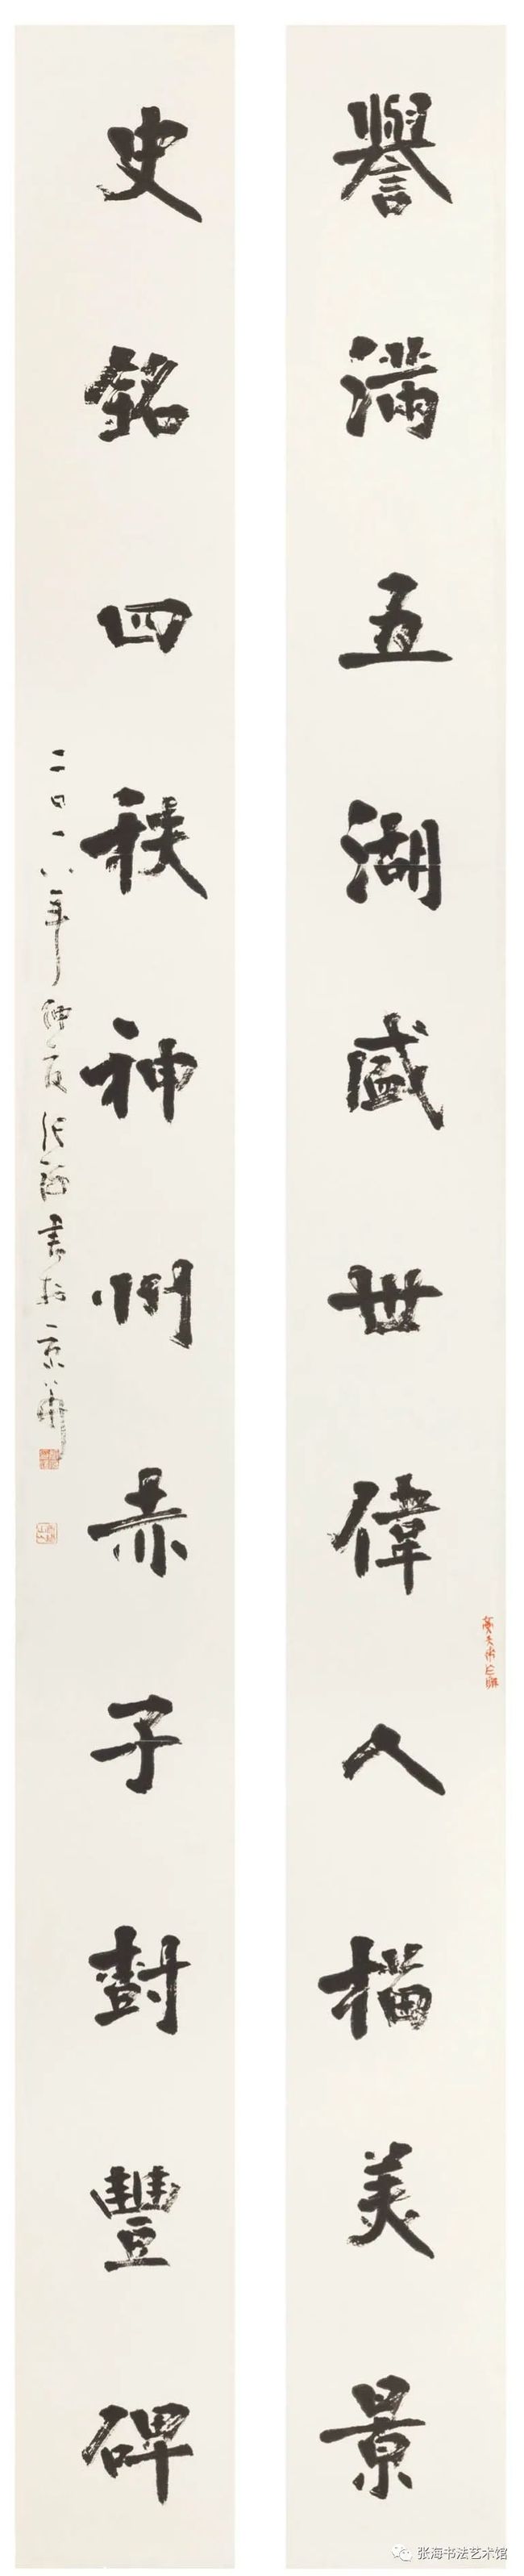 譽滿五湖盛世偉人描美景
史銘四秩神州赤子封豐碑
二〇一八年仲夏張海書於京華
张海书法艺术馆